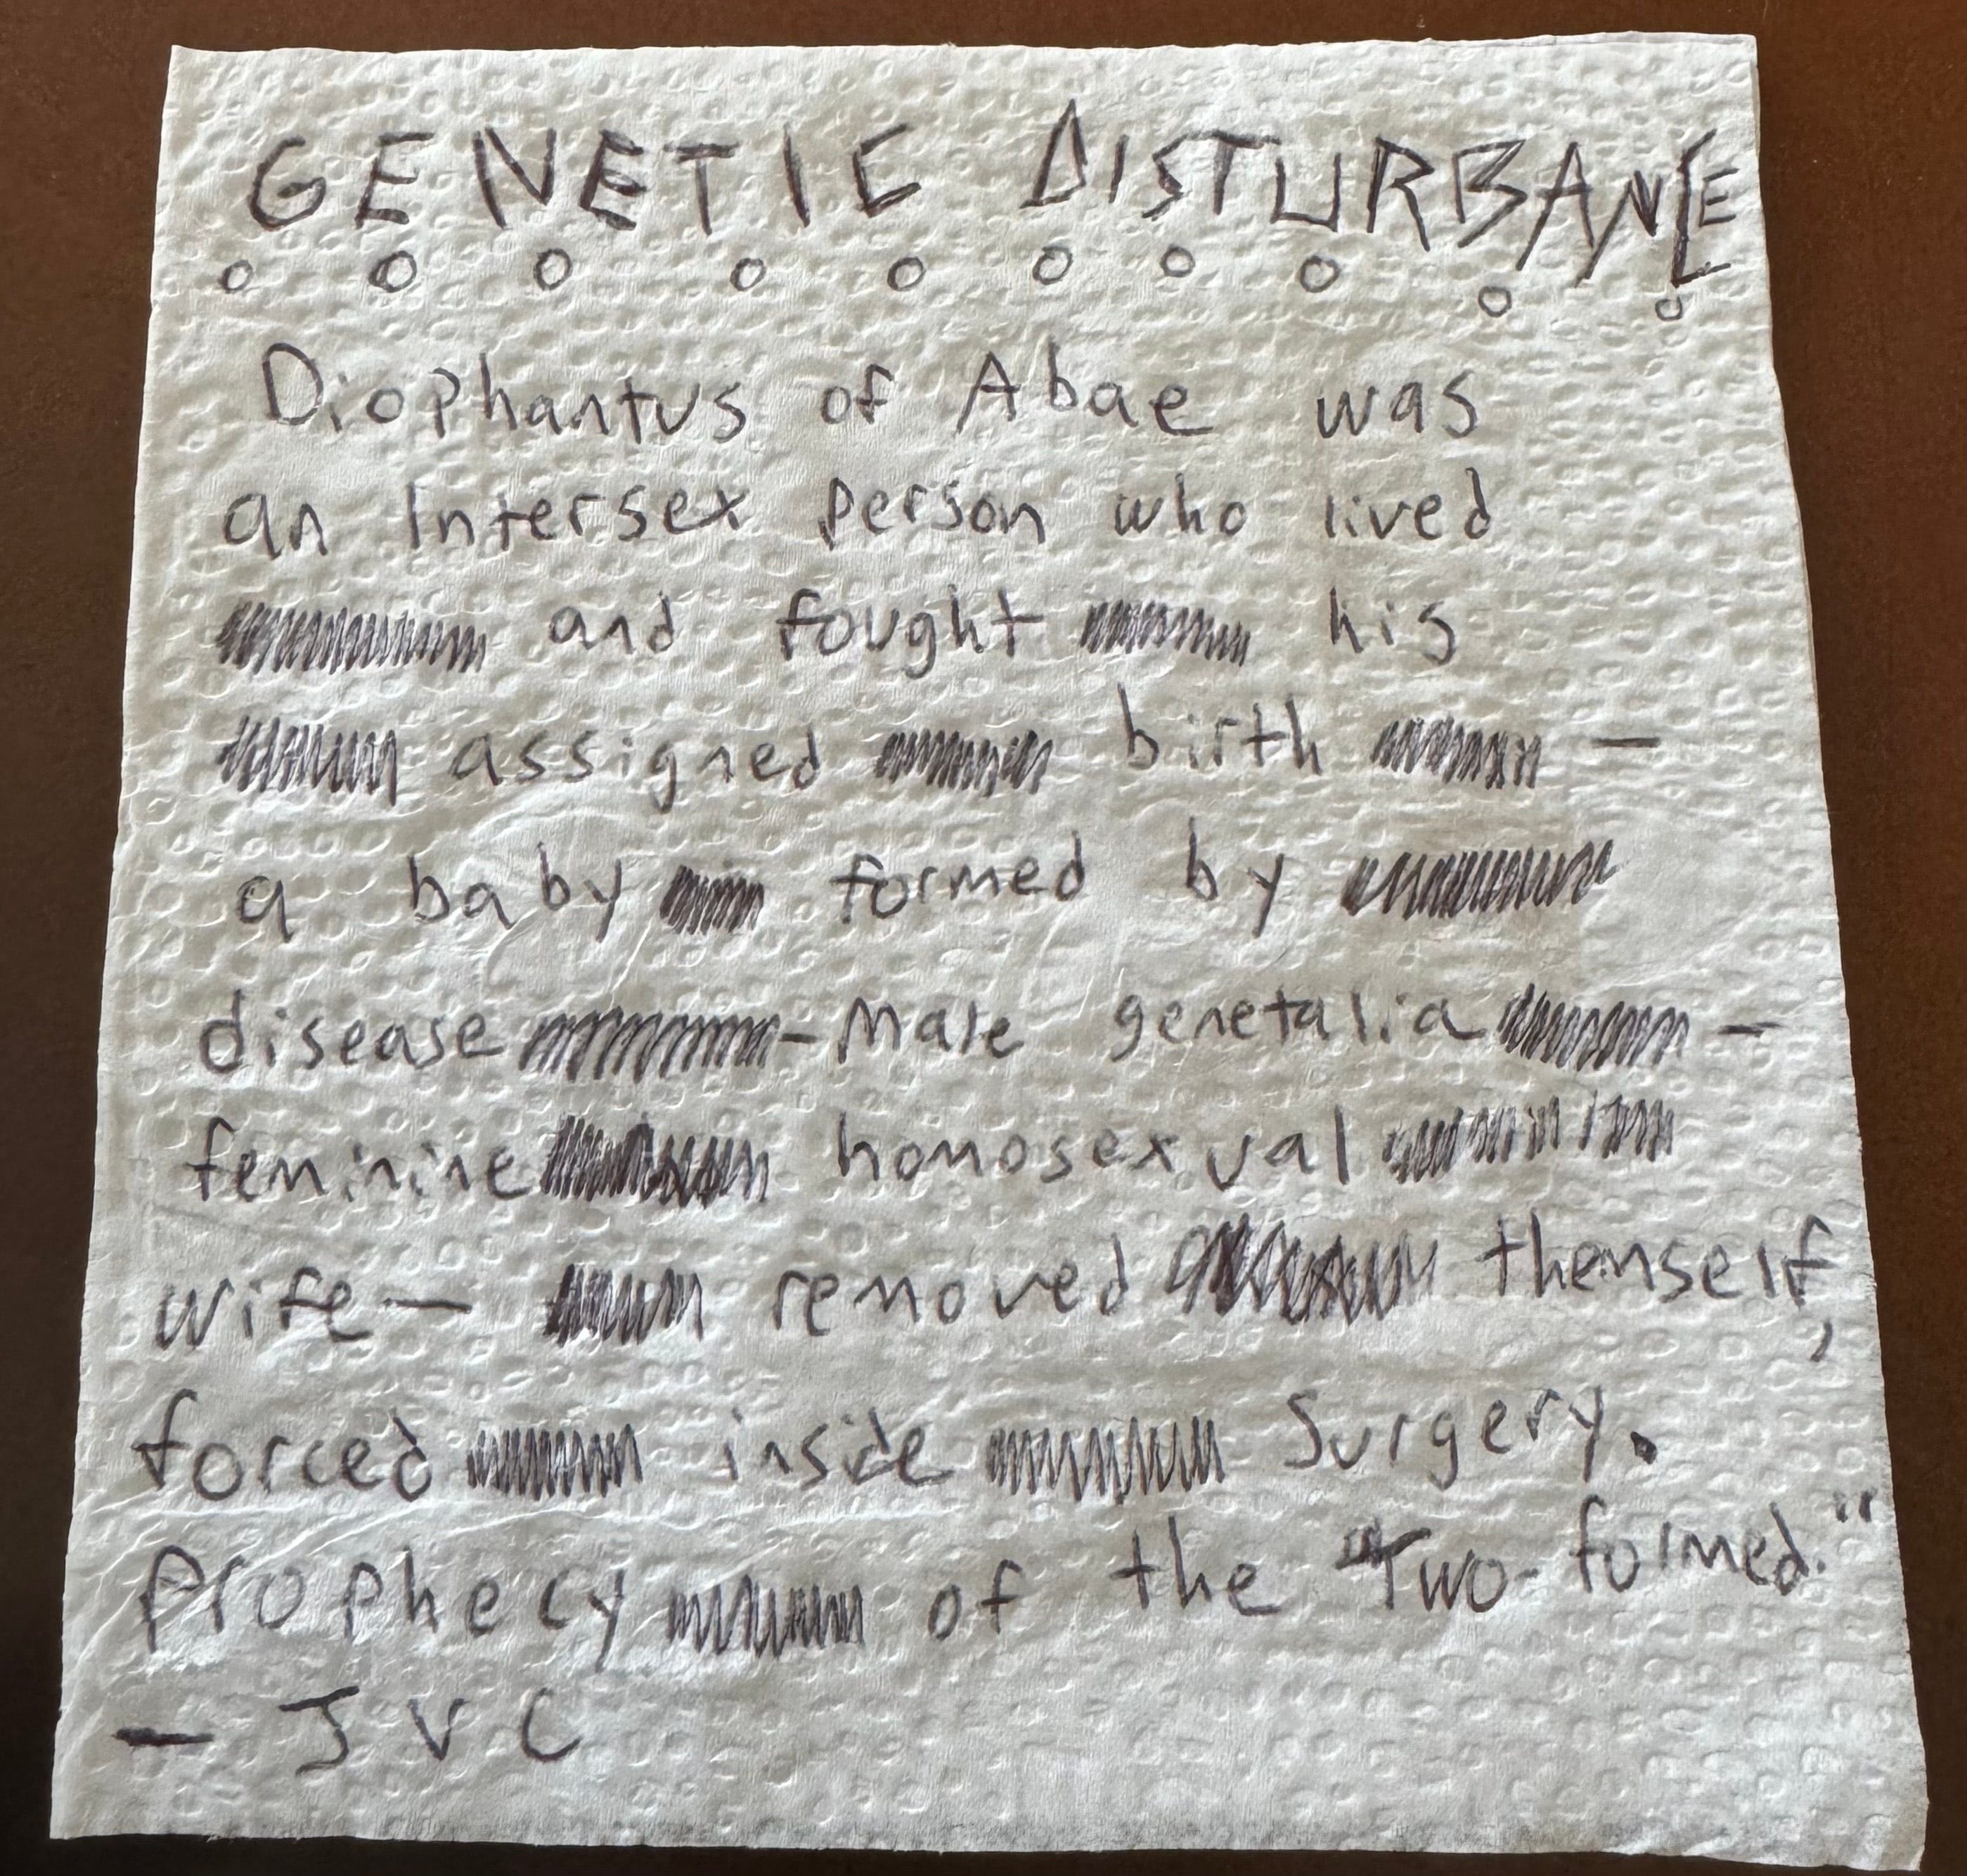 GENETIC DISTURBANE
Diophantus of Abae was
an Intersex person who lived
and fought his
assigned birth —
a baby formed by
disease - Male genetalia —
feminine homosexual
wife — removed themself,
forced inside Surgery.
Prophecy of the "Two-formed."
— JVC